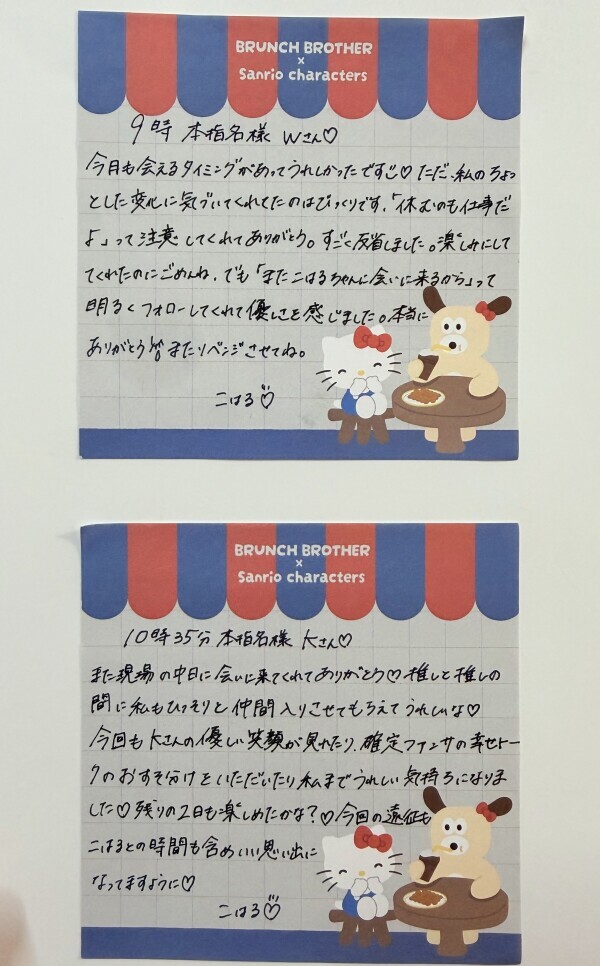 BRUNCH BROTHER
×
Sanrio characters
9時 本指名様 Wさん♡
今月も会えるタイミングがあってうれしかったです♡ ただ、私のちょっ
とした変化に気づいてくれてたのはびっくりです、「休むのも仕事だ
よ」って注意してくれてありがとう。すごく反省しました。楽しみにして
てくれたのにごめんね、でも「またこはるちゃんに会いに来るから」って
明るくフォローしてくれて優しさを感じました。本当に
ありがとう またリベンジさせてね。
こはる♡
BRUNCH BROTHER
×
Sanrio characters
10時35分 本指名様 Kさん♡
また現場の中日に会いに来てくれてありがとう♡ 推しと推しの
間に私もひっそりと仲間入りさせてもらえてうれしいな♡
今回もKさんの優しい笑顔が見れたり、確定ファンサの幸せトー
クのおすそ分けをいただいたり私までうれしい気持ちになりま
した♡ 残りの2日も楽しめたかな?♡ 今回の遠征も
こはるとの時間も含めいい思い出に
なってますように♡
こはる♡